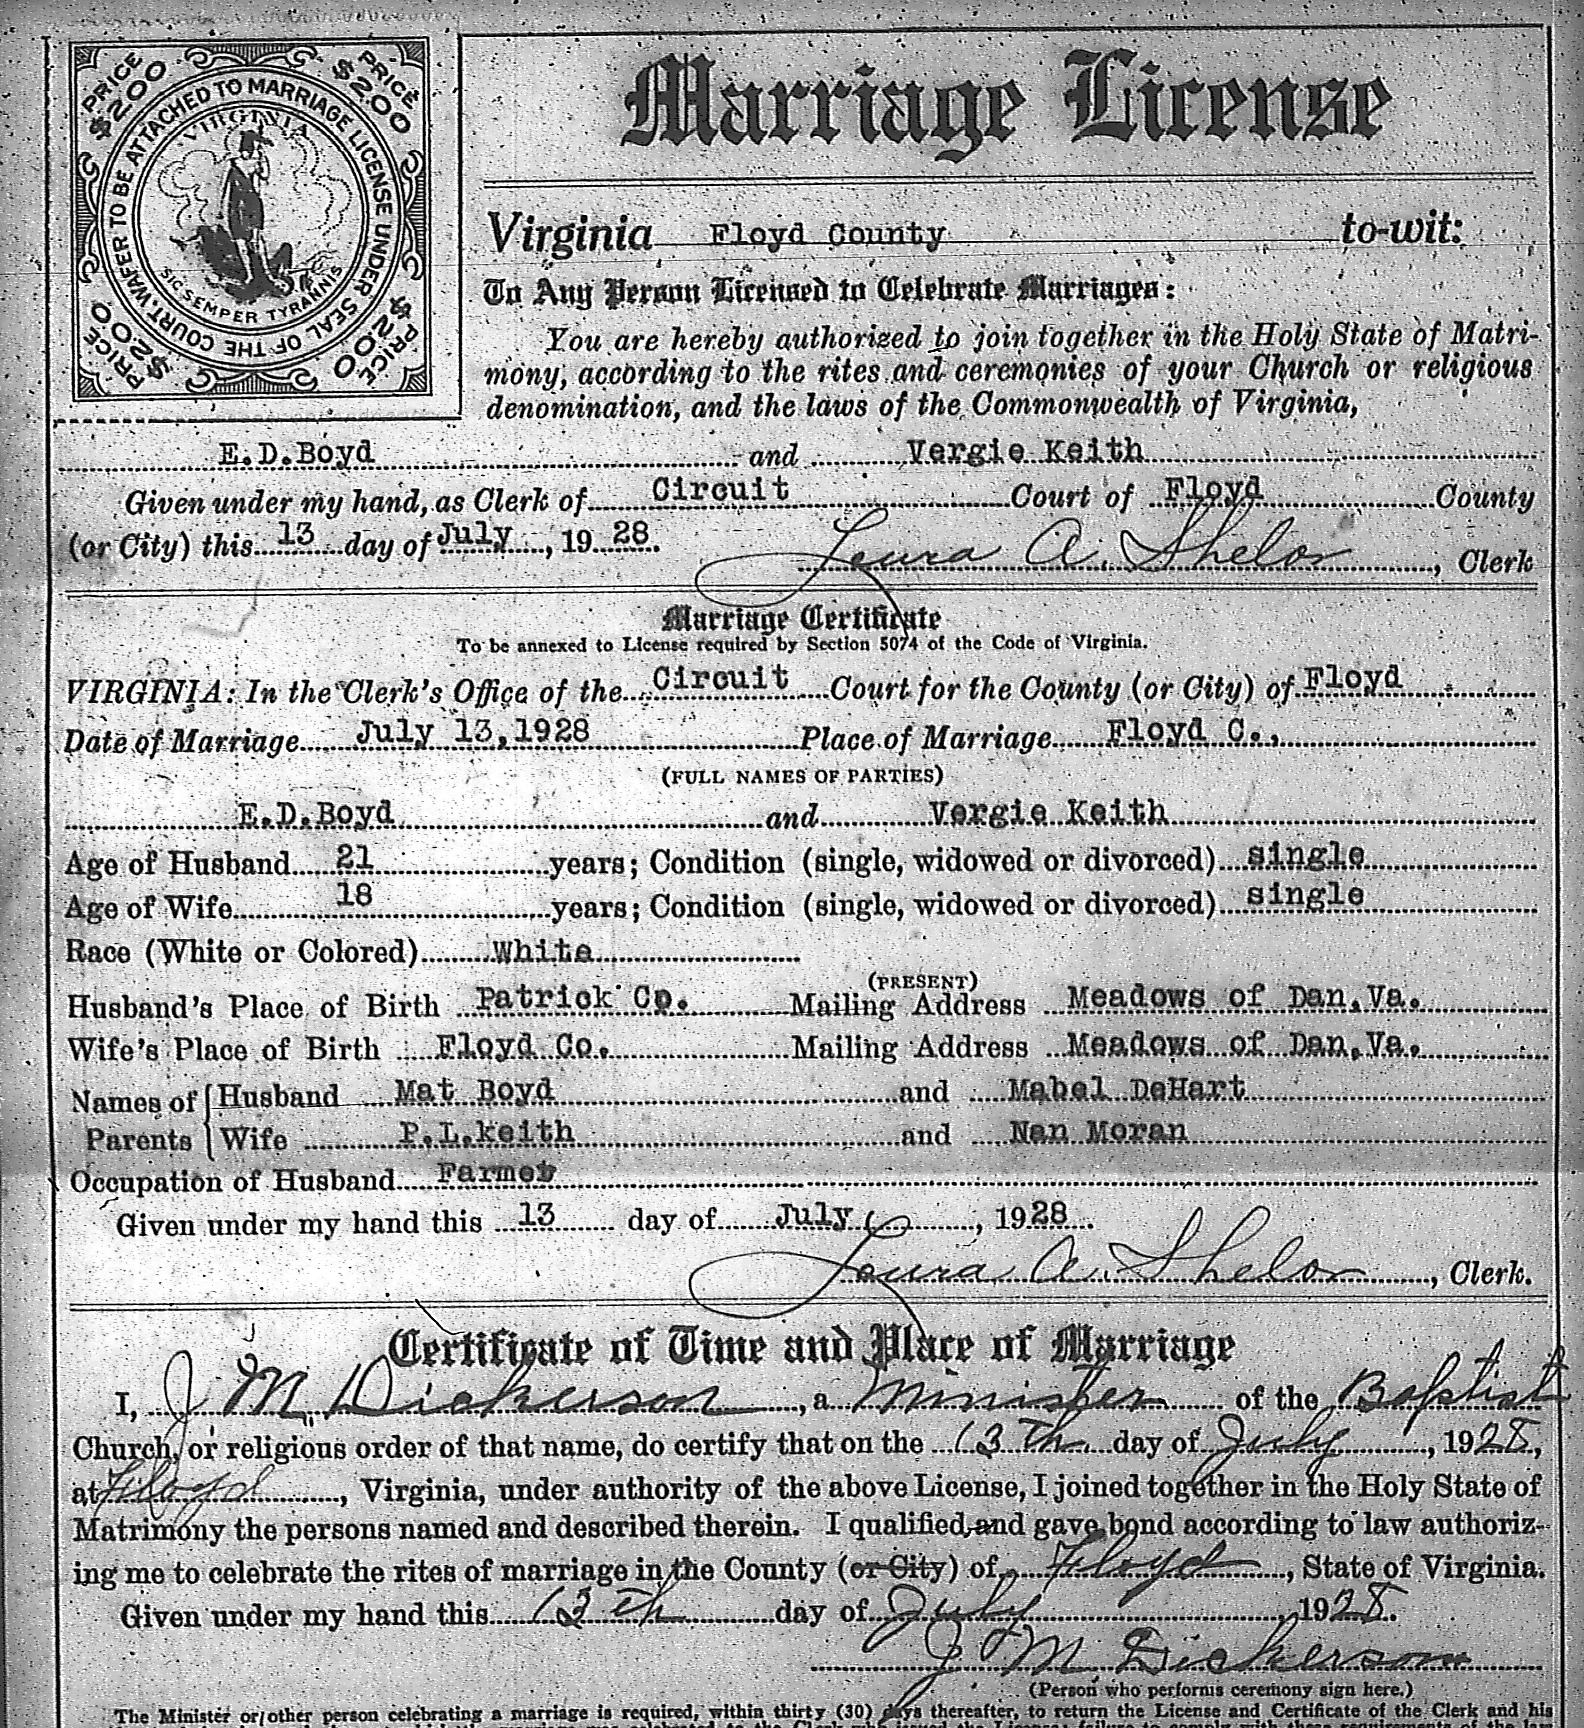 PRICE $2.00 PRICE $2.00
WAFER TO BE ATTACHED TO MARRIAGE LICENSE UNDER SEAL OF THE COURT.
VIRGINIA
SIC SEMPER TYRANNIS
PRICE $2.00 PRICE $2.00
Marriage License
Virginia Floyd County to-wit:
To Any Person Licensed to Celebrate Marriages:
You are hereby authorized to join together in the Holy State of Matri-
mony, according to the rites and ceremonies of your Church or religious
denomination, and the laws of the Commonwealth of Virginia,
E.D.Boyd and Vergie Keith
Given under my hand, as Clerk of Circuit Court of Floyd County
(or City) this 13 day of July, 1928.
Laura A. Shelor, Clerk
Marriage Certificate
To be annexed to License required by Section 5074 of the Code of Virginia.
VIRGINIA: In the Clerk's Office of the Circuit Court for the County (or City) of Floyd
Date of Marriage July 13,1928 Place of Marriage Floyd C.,
(FULL NAMES OF PARTIES)
E.D.Boyd and Vergie Keith
Age of Husband 21 years; Condition (single, widowed or divorced) single
Age of Wife 18 years; Condition (single, widowed or divorced) single
Race (White or Colored) White
(PRESENT)
Husband's Place of Birth Patrick Co. Mailing Address Meadows of Dan,Va.
Wife's Place of Birth Floyd Co. Mailing Address Meadows of Dan,Va.
Names of Husband Mat Boyd and Mabel DeHart
Parents Wife P.L.keith and Nan Moran
Occupation of Husband Farmer
Given under my hand this 13 day of July, 1928.
Laura A. Shelor, Clerk.
Certificate of Time and Place of Marriage
I, J M Dickerson, a Minister of the Baptist
Church, or religious order of that name, do certify that on the 13th day of July, 1928,
at Floyd, Virginia, under authority of the above License, I joined together in the Holy State of
Matrimony the persons named and described therein. I qualified and gave bond according to law authoriz-
ing me to celebrate the rites of marriage in the County (or City) of Floyd, State of Virginia.
Given under my hand this 13th day of July 1928.
J M Dickerson
(Person who performs ceremony sign here.)
The Minister or other person celebrating a marriage is required, within thirty (30) days thereafter, to return the License and Certificate of the Clerk and his